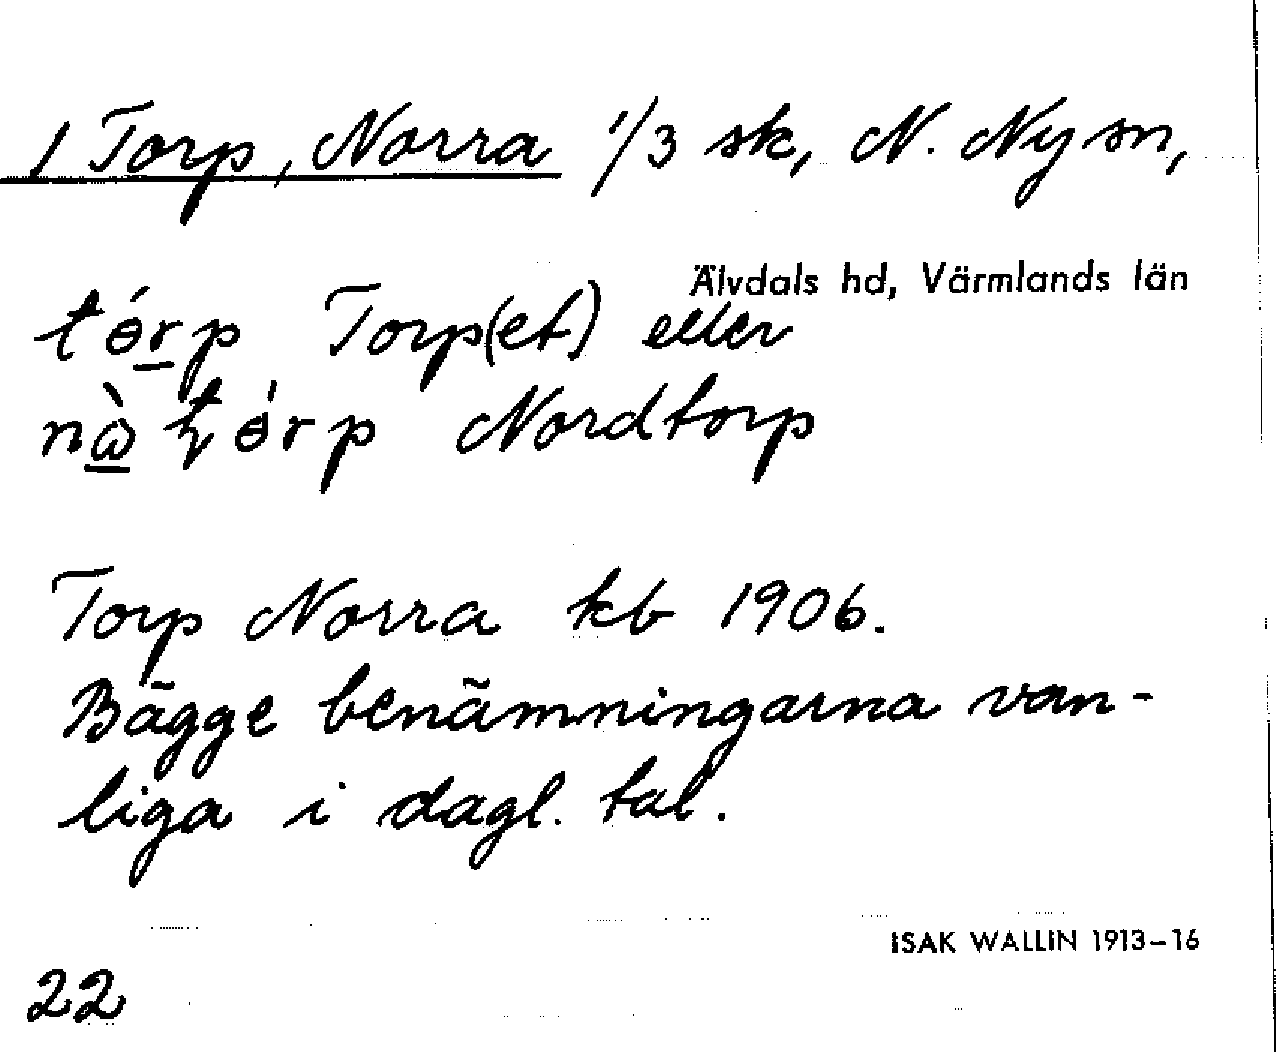 1 Torp, Norra 1/3 sk, N. Ny sn,
Älvdals hd, Värmlands län
tɵ́r̲p Torp(et) eller
nɷ̲̀ ʈɵ́rp Nordtorp
Torp Norra kb 1906.
Bägge benämningarna van-
liga i dagl. tal.
ISAK WALLIN 1913–16
22